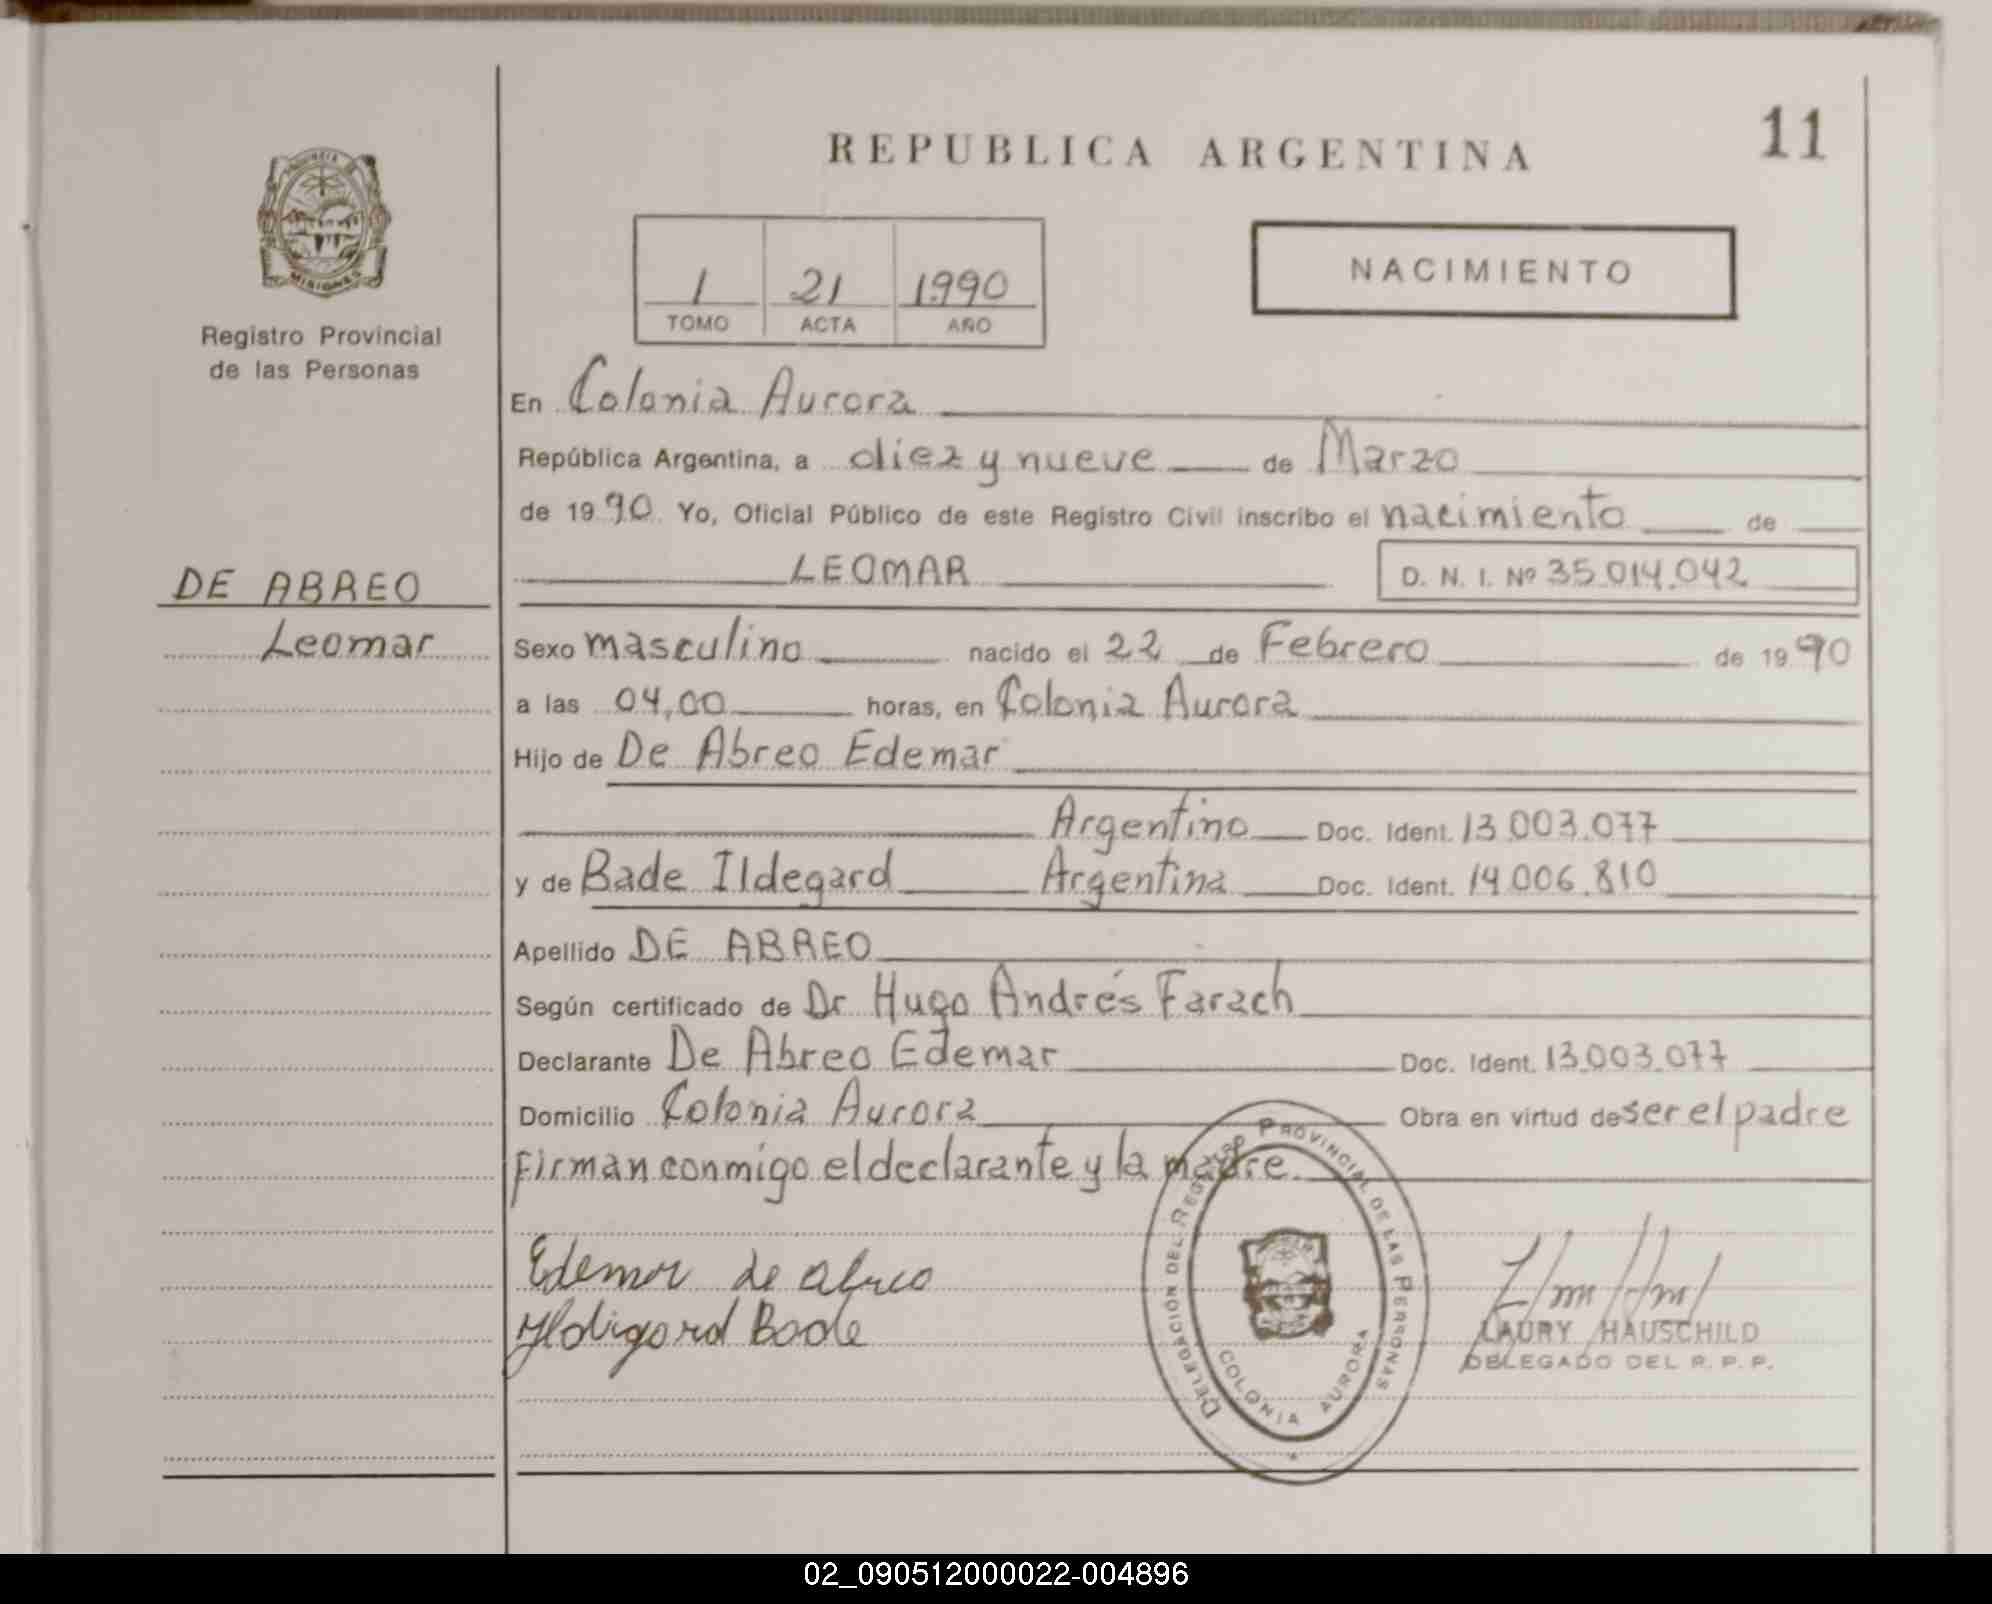 REPUBLICA ARGENTINA
11
MISIONES
Registro Provincial
de las Personas
1 21 1990
TOMO ACTA AÑO
NACIMIENTO
En Colonia Aurora
República Argentina, a diez y nueve de Marzo
de 1990. Yo, Oficial Público de este Registro Civil inscribo el nacimiento de
LEOMAR D. N. I. Nº 35.014.042
DE ABREO
Leomar
Sexo masculino nacido el 22 de Febrero de 1990
a las 04,00 horas, en Colonia Aurora
Hijo de De Abreo Edemar
Argentino Doc. Ident. 13.003.077
y de Bade Ildegard Argentina Doc. Ident. 14.006.810
Apellido DE ABREO
Según certificado de Dr Hugo Andrés Farach
Declarante De Abreo Edemar Doc. Ident. 13.003.077
Domicilio Colonia Aurora Obra en virtud de ser el padre
Firman conmigo el declarante y la madre.
Edemar de abreo
Ildigard Bade
DELEGACIÓN DEL REGISTRO PROVINCIAL DE LAS PERSONAS
COLONIA AURORA
LAURY HAUSCHILD
DELEGADO DEL R. P. P.
02_090512000022-004896